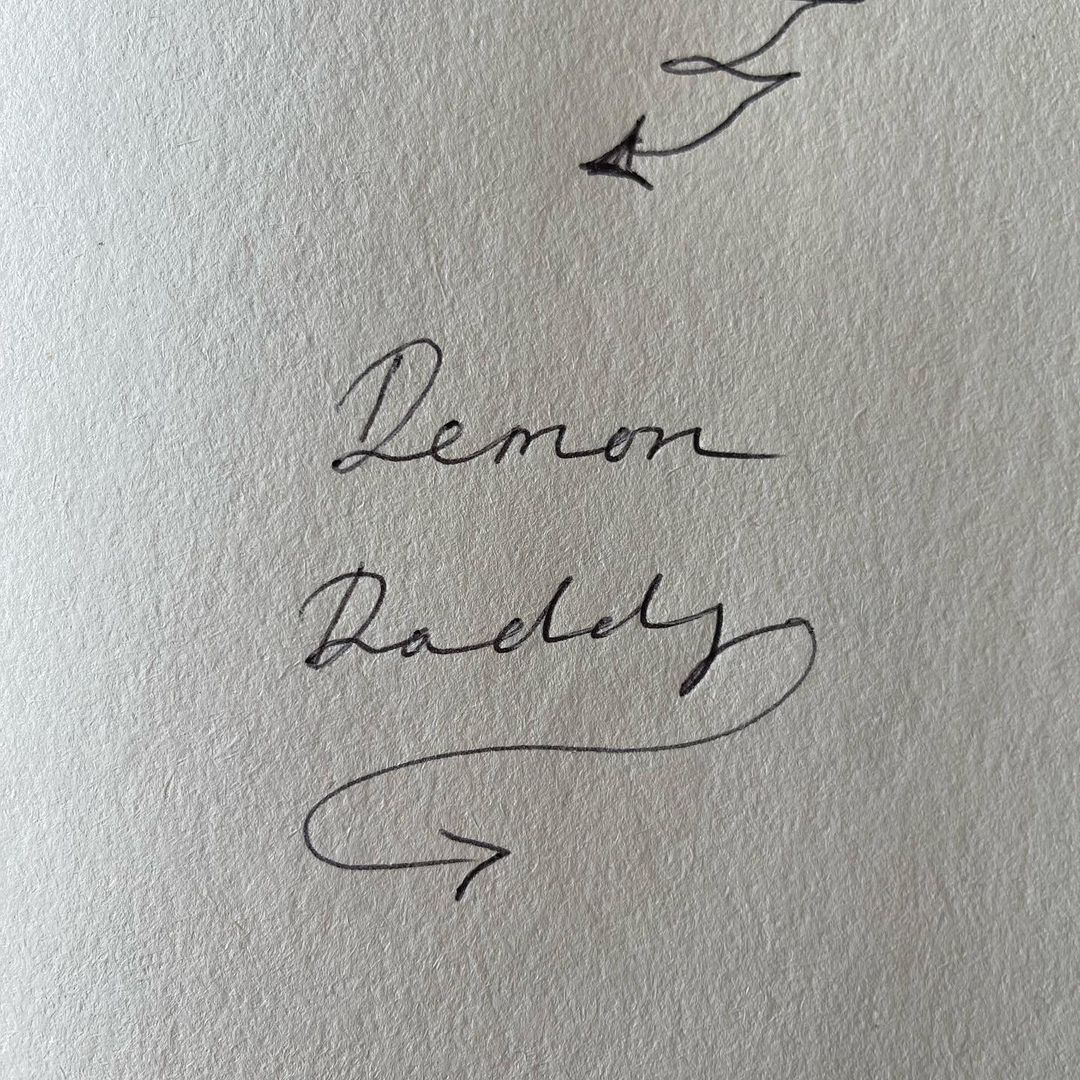 Demon
Daddy